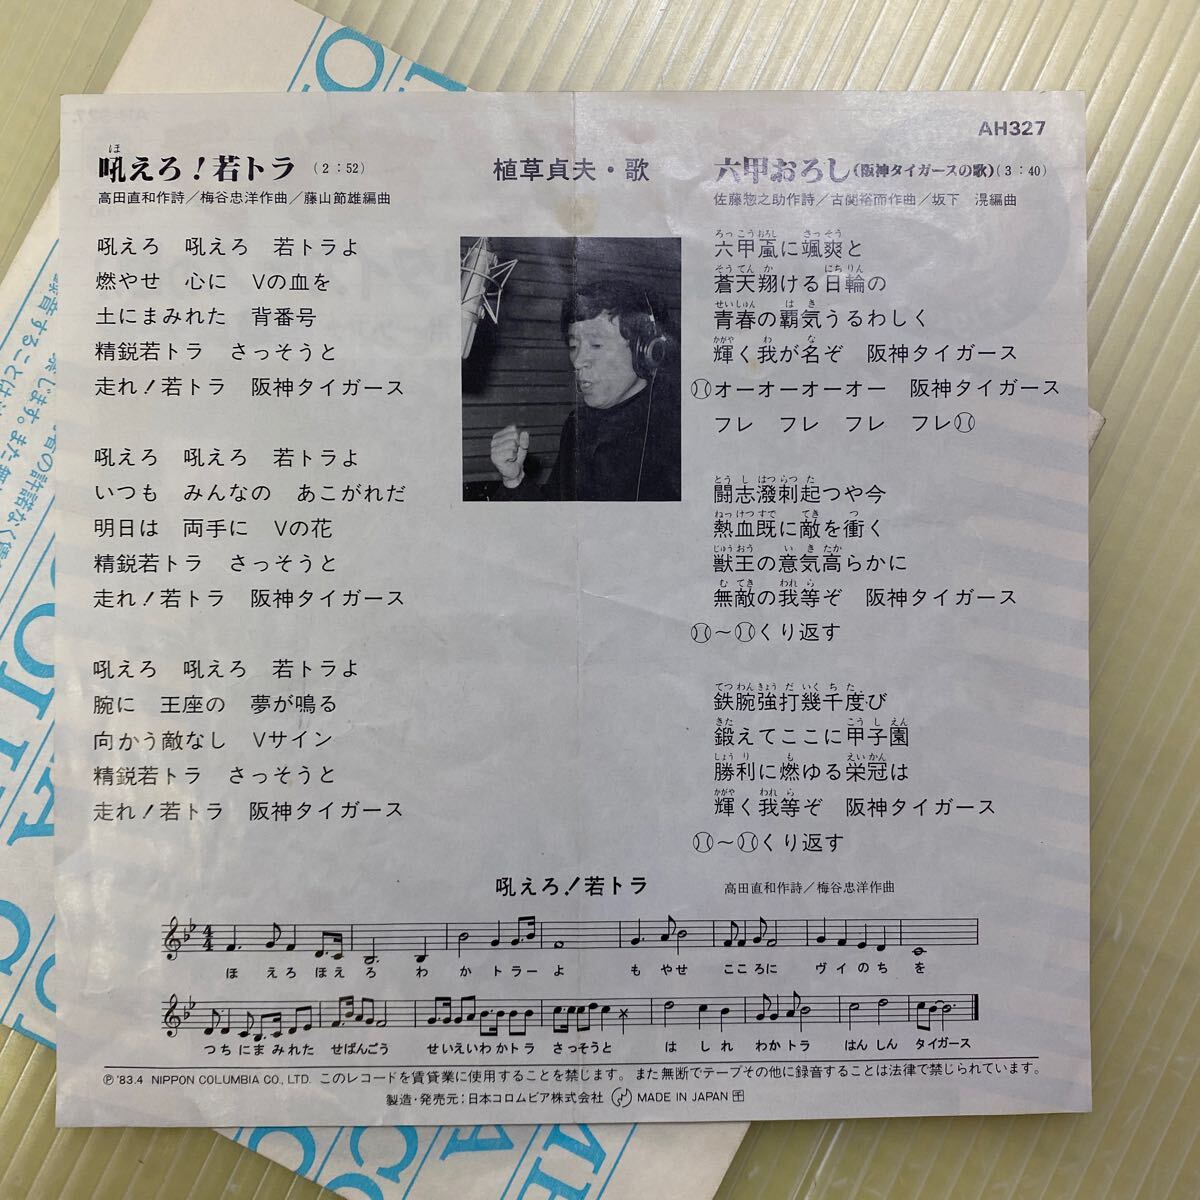 AH327
吼えろ!若トラ (2:52)
ほ
高田直和作詩/梅谷忠洋作曲/藤山節雄編曲
吼えろ 吼えろ 若トラよ
燃やせ 心に Vの血を
土にまみれた 背番号
精鋭若トラ さっそうと
走れ!若トラ 阪神タイガース
吼えろ 吼えろ 若トラよ
いつも みんなの あこがれだ
明日は 両手に Vの花
精鋭若トラ さっそうと
走れ!若トラ 阪神タイガース
吼えろ 吼えろ 若トラよ
腕に 王座の 夢が鳴る
向かう敵なし Vサイン
精鋭若トラ さっそうと
走れ!若トラ 阪神タイガース
植草貞夫・歌
六甲おろし(阪神タイガースの歌)(3:40)
佐藤惣之助作詩/古関裕而作曲/坂下 滉編曲
ろっこうおろし さっそう
六甲颪に颯爽と
そうてんか にちりん
蒼天翔ける日輪の
せいしゅん はき
青春の覇気うるわしく
かがや わ な
輝く我が名ぞ 阪神タイガース
オーオーオーオー 阪神タイガース
フレ フレ フレ フレ
とうしはつらつた
闘志溌剌起つや今
ねっけつすで てき つ
熱血既に敵を衝く
じゅうおう いきたか
獣王の意気高らかに
むてき われら
無敵の我等ぞ 阪神タイガース
〜くり返す
てつわんきょうだいくちたび
鉄腕強打幾千度び
きた こうしえん
鍛えてここに甲子園
しょうり も えいかん
勝利に燃ゆる栄冠は
かがや われら
輝く我等ぞ 阪神タイガース
〜くり返す
吼えろ!若トラ 高田直和作詩/梅谷忠洋作曲
ほ えろ ほえ ろ わ か トラー よ も やせ こころに ヴイのち を
つちにまみれた せばんごう せいえいわかトラ さっそうと は しれ わかトラ はんしん タイガース
Ⓟ'83.4 NIPPON COLUMBIA CO., LTD. このレコードを賃貸業に使用することを禁じます。また無断でテープその他に録音することは法律で禁じられています。
製造・発売元:日本コロムビア株式会社 MADE IN JAPAN